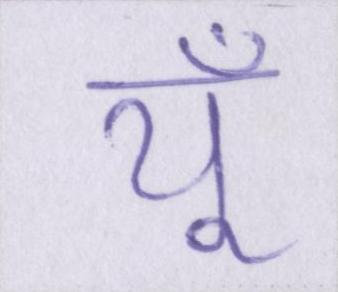 यूँ